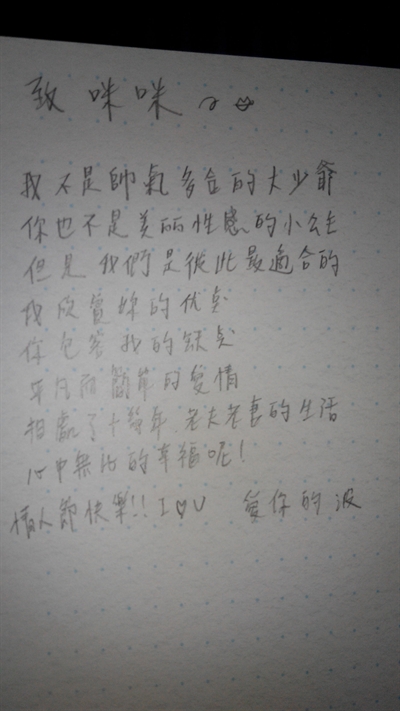 致 咪咪
我不是帥氣多金的大少爺
你也不是美丽性感的小公主
但是 我們是彼此最適合的
我欣賞妳的优点
你包容我的缺点
平凡而簡單的愛情
相處了十幾年 老夫老妻的生活
心中無比的幸福呢!
情人節快樂!! I♡U 愛你的